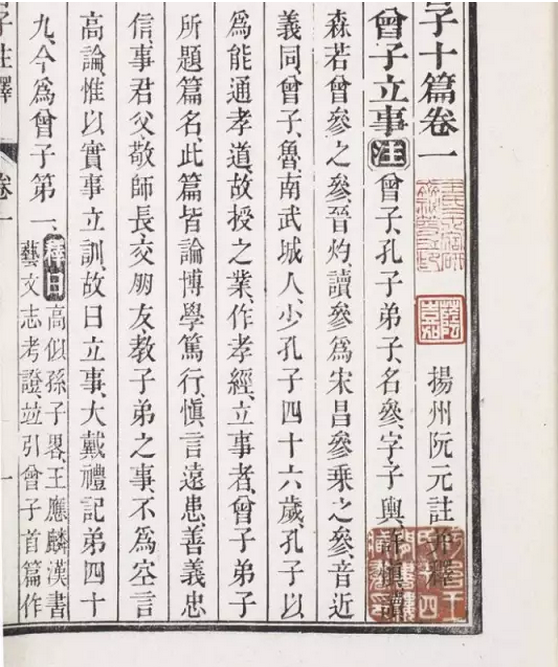 子十篇卷一
蔭嘉
揚州阮元註并釋
曾子立事 注 曾子、孔子弟子、名參、字子輿、許愼讀
森若曾參之參、晉灼、讀參爲宋昌參乘之參、音近
義同、曾子、魯、南武城人、少孔子四十六歲、孔子以
爲能通孝道、故授之業、作孝經、立事者、曾子弟子
所題篇名、此篇皆論博學篤行、愼言遠患、善義忠
信、事君父、敬師長、交朋友、教子弟之事、不爲空言
高論、惟以實事立訓、故曰立事、大戴禮記弟四十
九、今爲曾子第一、釋曰
高似孫子畧、王應麟漢書
藝文志考證、竝引曾子首篇作
子註釋 卷一
一